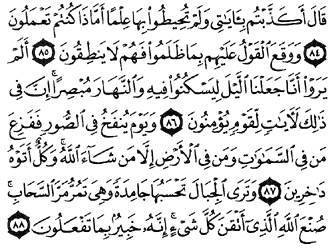 قَالَ أَكَذَّبْتُم بِـَٔايَـٰتِى وَلَمْ تُحِيطُوا۟ بِهَا عِلْمًا أَمَّاذَا كُنتُمْ تَعْمَلُونَ
﴿٨٤﴾ وَوَقَعَ ٱلْقَوْلُ عَلَيْهِم بِمَا ظَلَمُوا۟ فَهُمْ لَا يَنطِقُونَ ﴿٨٥﴾ أَلَمْ
يَرَوْا۟ أَنَّا جَعَلْنَا ٱلَّيْلَ لِيَسْكُنُوا۟ فِيهِ وَٱلنَّهَارَ مُبْصِرًا ۚ إِنَّ فِى
ذَٰلِكَ لَـَٔايَـٰتٍ لِّقَوْمٍ يُؤْمِنُونَ ﴿٨٦﴾ وَيَوْمَ يُنفَخُ فِى ٱلصُّورِ فَفَزِعَ
مَن فِى ٱلسَّمَـٰوَٰتِ وَمَن فِى ٱلْأَرْضِ إِلَّا مَن شَآءَ ٱللَّهُ ۚ وَكُلٌّ أَتَوْهُ
دَٰخِرِينَ ﴿٨٧﴾ وَتَرَى ٱلْجِبَالَ تَحْسَبُهَا جَامِدَةً وَهِىَ تَمُرُّ مَرَّ ٱلسَّحَابِ ۚ
صُنْعَ ٱللَّهِ ٱلَّذِىٓ أَتْقَنَ كُلَّ شَىْءٍ ۚ إِنَّهُۥ خَبِيرٌۢ بِمَا تَفْعَلُونَ ﴿٨٨﴾